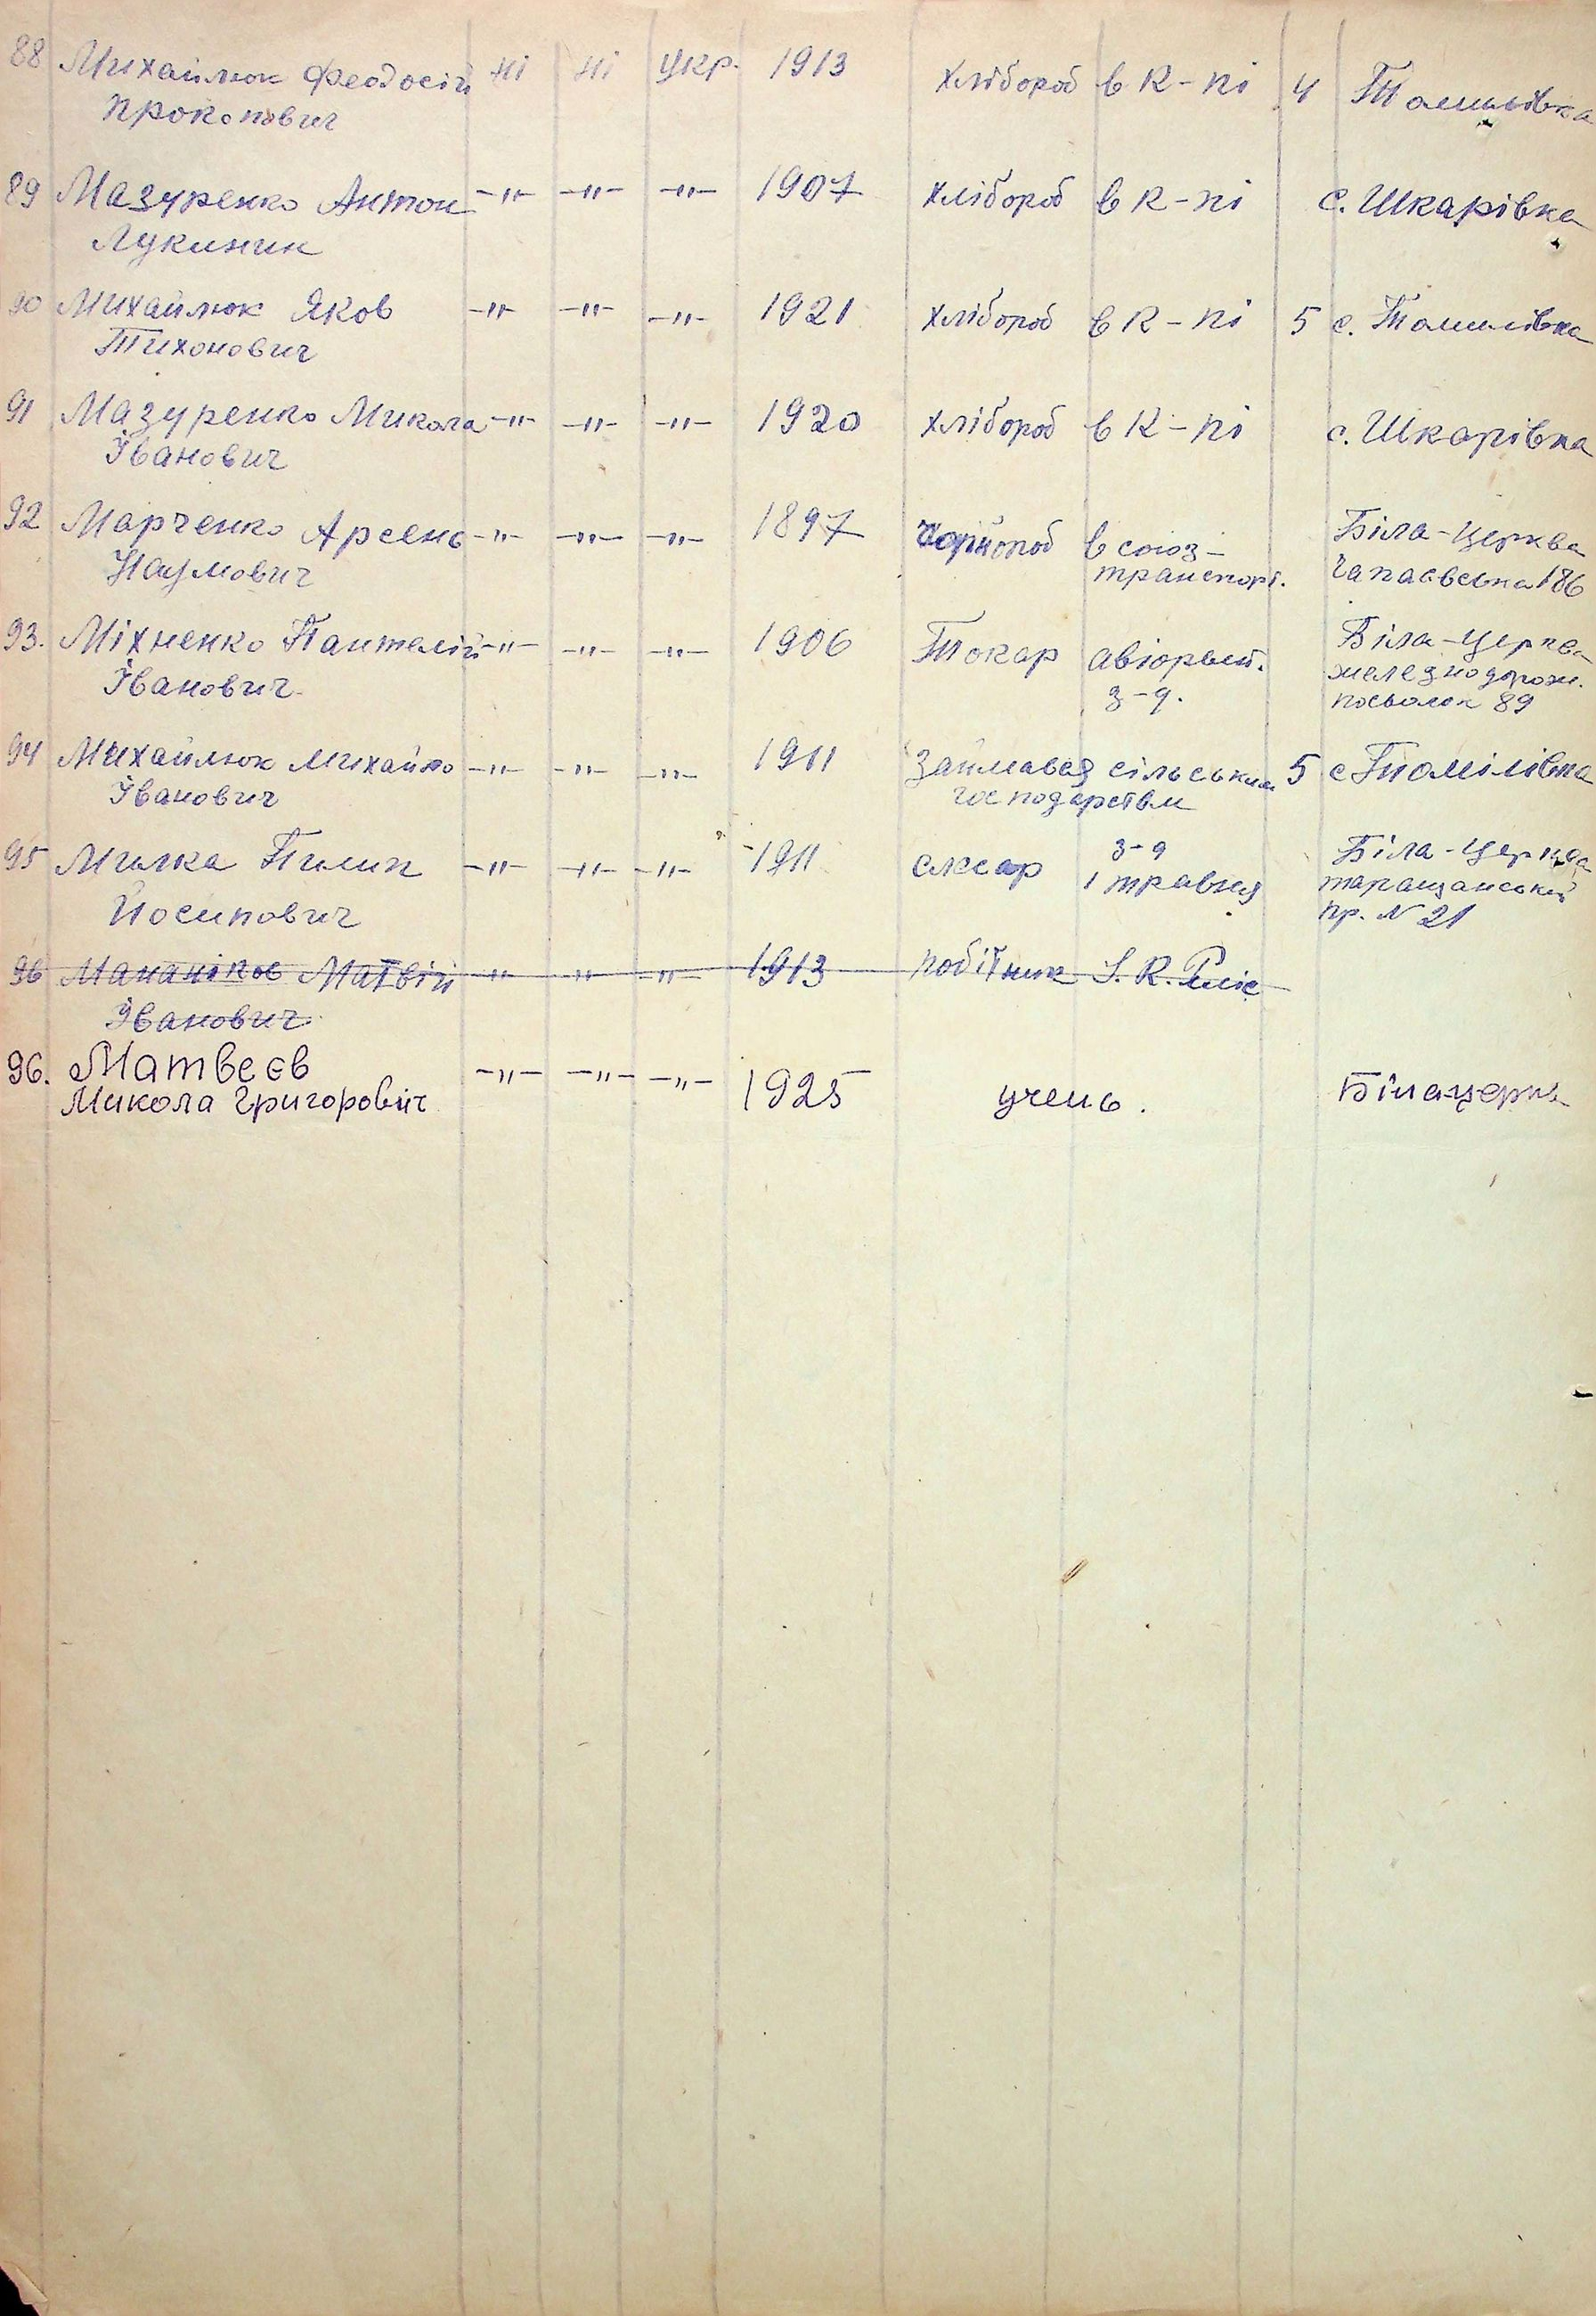 88 Михайлюк Феодосій ні ні укр. 1913 хлібороб в к-пі 4 Томилівка
Прокопович
89 Мазуренко Антон -"- -"- -"- 1907 хлібороб в к-пі с. Шкарівка
Лукинин
90 Михайлюк Яков -"- -"- -"- 1921 хлібороб в к-пі 5 с. Томилівка
Тихонович
91 Мазуренко Микола -"- -"- -"- 1920 хлібороб в к-пі с. Шкарівка
Іванович
92 Марченко Арсень -"- -"- -"- 1897 в союз- Біла-Церква
Наумович транспорт. Чапаєвська 186
93. Міхненко Пантелій -"- -"- -"- 1906 Токар авіорем. Біла-Церква
Іванович з-д. железнодорож.
посьолок 89
94 Михайлюк Михайло -"- -"- -"- 1911 Займався сільським 5 с Томілівка
Іванович господарством
95 Милка Пилип -"- -"- -"- 1911 слесар з-д Біла-Церква
Йосипович 1 травня таращанський
пр. № 21
96 Мананіков Матвій " " -"- 1913 робітник
Іванович
96. Матвеєв -"- -"- -"- 1925 учень. Білацерква
Микола Григоровіч